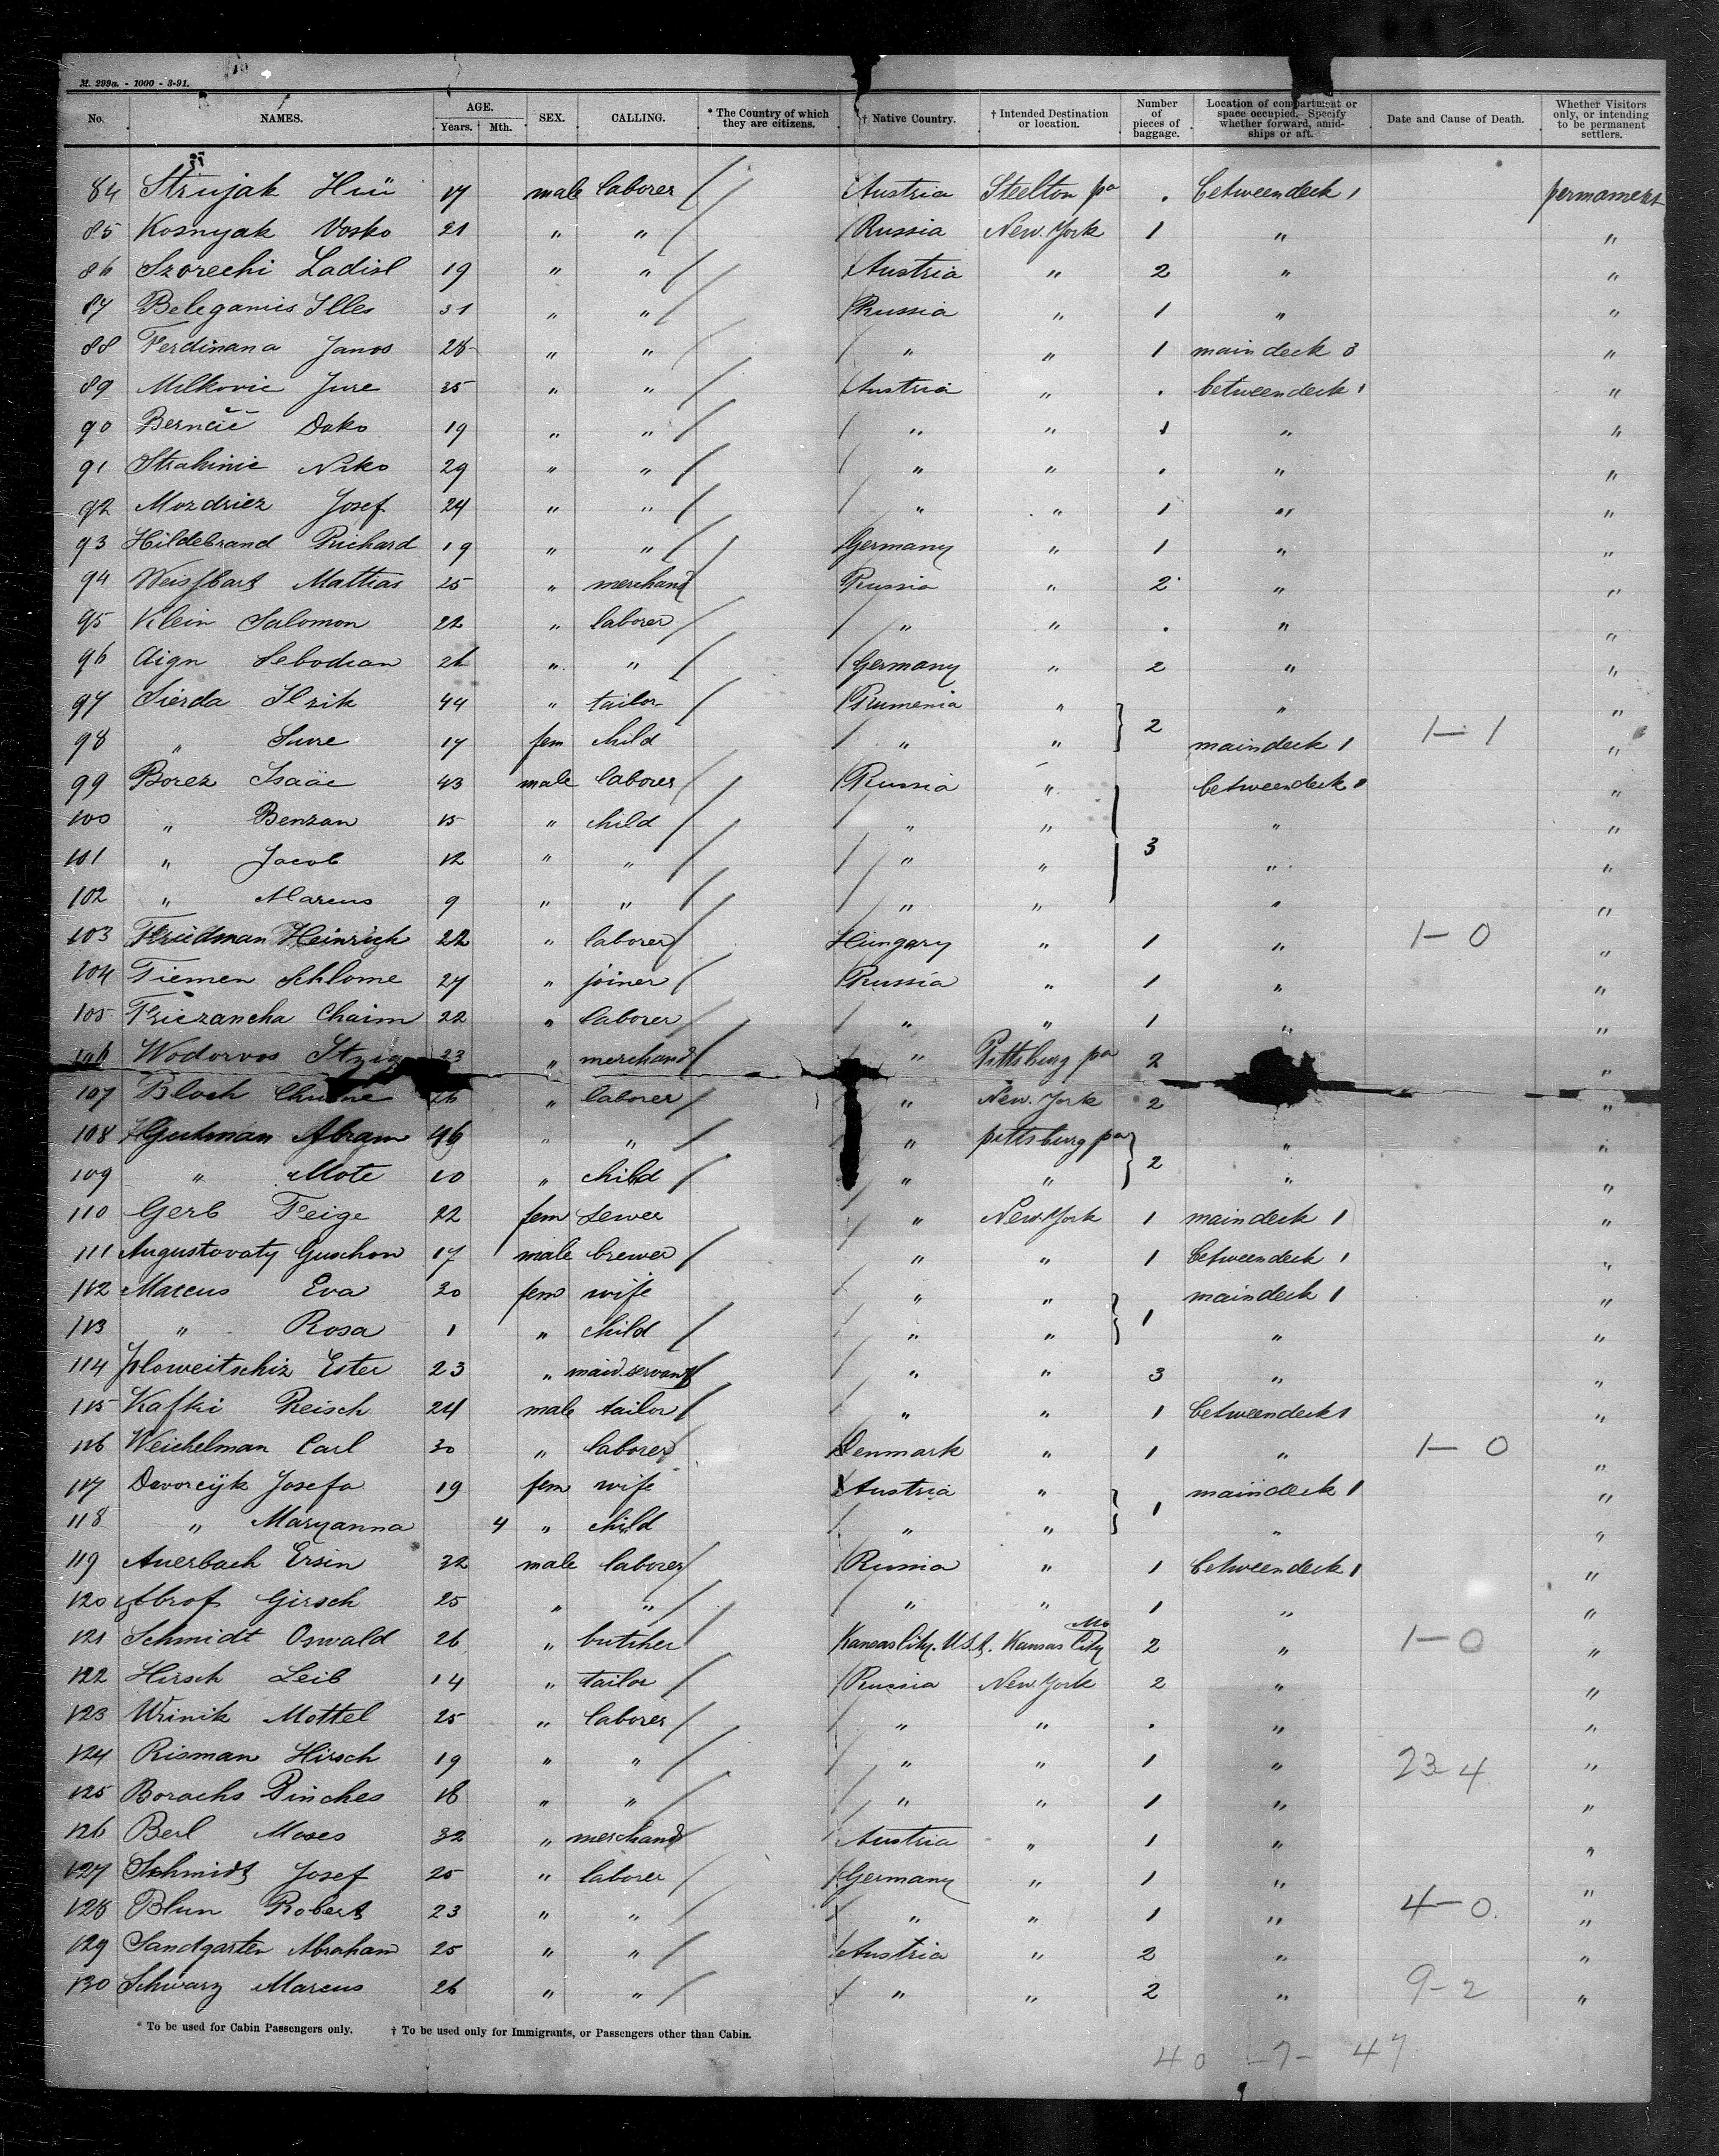 M. 299a. - 1000 - 3-91.
No. NAMES. AGE. Years. Mth. SEX. CALLING. * The Country of which they are citizens. † Native Country. † Intended Destination or location. Number of pieces of baggage. Location of compartment or space occupied. Specify whether forward, amidships or aft. Date and Cause of Death. Whether Visitors only, or intending to be permanent settlers.
84 Strujak 17 male laborer Austria Steelton pa . betweendeck 1 permament
85 Kosnyak Vasko 21 " " Russia New York 1 " "
86 Szorechi Ladisl 19 " " Austria " 2 " "
87 Beleganics Illes 31 " " Russia " 1 " "
88 Ferdinana Janos 28 " " " " 1 maindeck 3 "
89 Milkovic Jure 35 " " Austria " . betweendeck 1 "
90 Dako 19 " " " " 1 " "
91 Strahinic Niko 29 " " " " . " "
92 Mozdriez Josef 24 " " " " 1 " "
93 Hildebrand Richard 19 " " Germany " 1 " "
94 Mattias 25 " merchand Russia " 2 " "
95 Klein Salomon 22 " laborer " " . " "
96 Aign 26 " " Germany " 2 " "
97 Sierda 44 " tailor Rumenia " } 2 " "
98 " Sure 17 fem child " " maindeck 1 1-1 "
99 Borez Isaäc 43 male laborer Russia " } 3 betweendeck 1 "
100 " Benzan 15 " child " " " "
101 " Jacob 12 " " " " " "
102 " Marcus 9 " " " " " "
103 Friedman Heinrich 22 " laborer Hungary " 1 " 1-0 "
104 Tiemen Schlome 27 " joiner Russia " 1 " "
105 Chaim 22 " laborer " " 1 " "
106 Wodorvos Itzig 23 " merchand " Pittsburg pa 2 "
107 Bloch 26 " laborer " New York 2 "
108 Gutman Abram 46 " " " pittsburg pa } 2 " "
109 " Mote 10 " child " " " "
110 Gerb Feige 22 fem sewer " New York 1 maindeck 1 "
111 Augustovaty Guschon 17 male brewer " " 1 betweendeck 1 "
112 Marcus Eva 30 fem wife " " } 1 maindeck 1 "
113 " Rosa 1 " child " " " "
114 Ester 23 " maid.servant " " 3 " "
115 Kafki Reisch 24 male tailor " " 1 betweendeck 1 "
116 Weichelman Carl 30 " laborer Denmark " 1 " 1-0 "
117 Dworcijk Josefa 19 fem wife Austria " } 1 maindeck 1 "
118 " Maryanna 4 " child " " " "
119 Auerbach Ersin 32 male laborer Russia " 1 betweendeck 1 "
120 Abrof Girsch 25 " " " " 1 " "
121 Schmidt Oswald 26 " butcher Kansas City. U.S.A. Kansas City Mo 2 " 1-0 "
122 Hirsch Leib 14 " tailor Russia New York 2 " "
123 Wrinik Mottel 25 " laborer " " . " "
124 Risman Hirsch 19 " " " " 1 " 23-4 "
125 Borachs Pinches 18 " " " " 1 " "
126 Berl Moses 32 " merchand Austria " 1 " "
127 Schmidt Josef 25 " laborer Germany " 1 " "
128 Blun Robert 23 " " " " 1 " 4-0. "
129 Sandgarten Abraham 25 " " Austria " 2 " "
130 Schwarz Marcus 26 " " " " 2 " 9-2 "
* To be used for Cabin Passengers only. † To be used only for Immigrants, or Passengers other than Cabin.
40 -7- 47